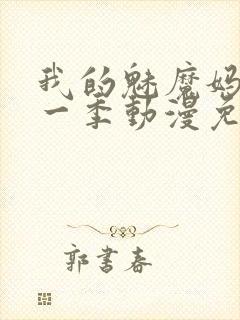 我的魅魔妈
一季動漫免
郭書春